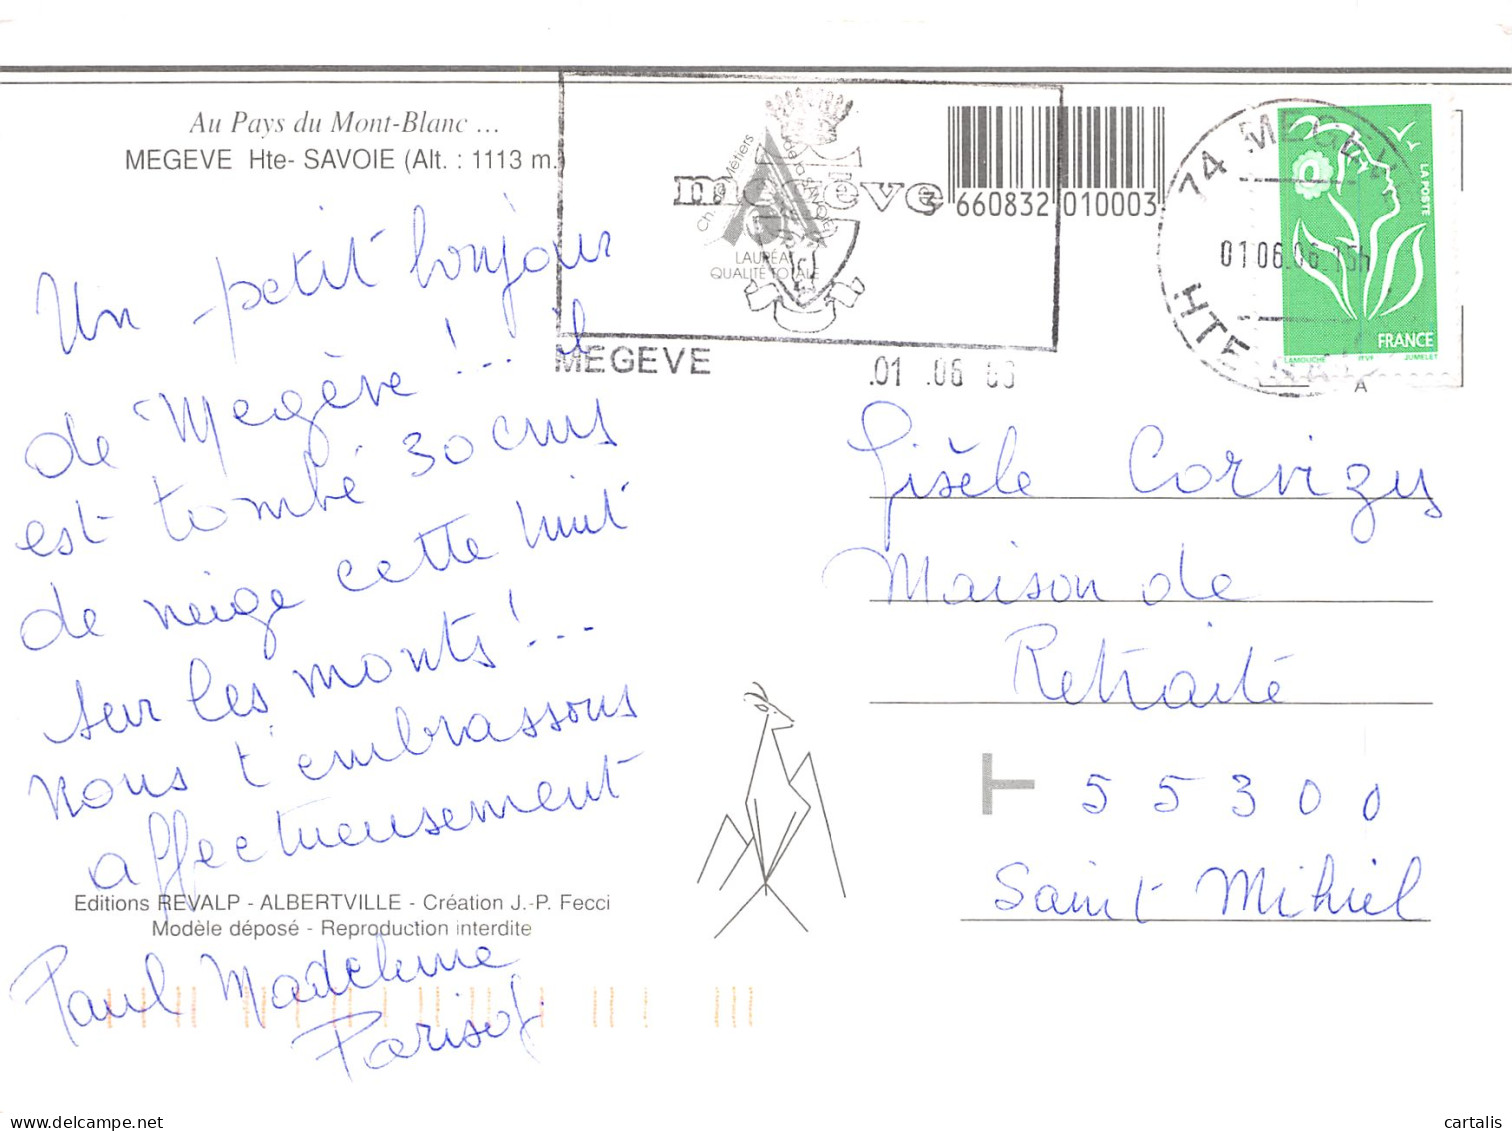 Au Pays du Mont-Blanc ...
MEGEVE Hte- SAVOIE (Alt. : 1113 m.)
Un petit bonjour
de Megève !.. il
est tombé 30 cms
de neige cette nuit
sur les monts !...
nous t'embrassons
affectueusement
Editions REVALP - ALBERTVILLE - Création J.-P. Fecci
Modèle déposé - Reproduction interdite
Paul Madeleine
Parisot
megève
Métiers
de la SAVOIE
LAURÉAT
QUALITÉ TOTALE
MEGEVE
01 .06 06
3 660832 010003
74 MEGEVE
01 06.06 15h
HTE SAVOIE
LA POSTE
FRANCE
LAMOUCHE ITVF JUMELET
A
Gisèle Corvizy
Maison de
Retraite
55300
Saint Mihiel
cartalis
delcampe.net